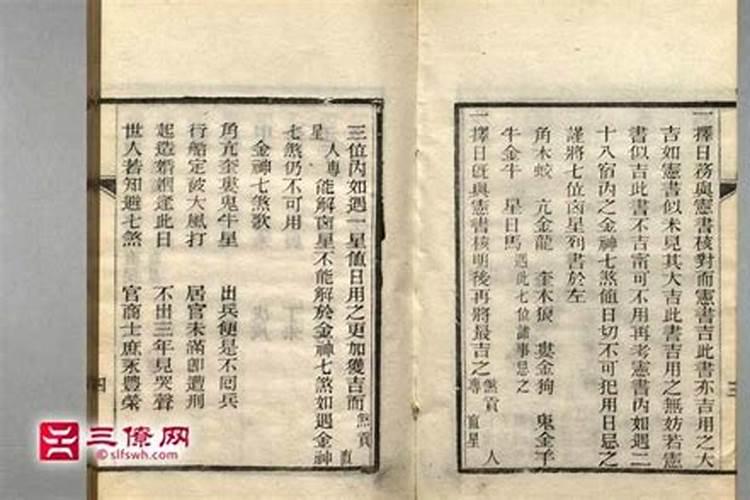 一擇日務與憲書核對而憲書吉此書亦吉用之大
吉如憲書似未見其大吉此書吉用之無妨若憲
書似吉此書不吉甯可不用再考憲書內如遇二
十八宿內之金神七煞值日切不可犯用日忌之
謹將七位凶星列書於左
角木蛟 亢金龍 奎木狼 婁金狗 鬼金羊
牛金牛 星日馬 遇此七位諸事忌之
一擇日既與憲書核明後再將最吉之煞貢直星人專
三
三位內如遇一星值日用之更加獲吉而煞貢直
星人專能解凶星不能解於金神七煞如遇金神
七煞仍不可用
金神七煞歌
角亢奎婁鬼牛星 出兵便是不囘兵
行船定被大風打 居官未滿即遭刑
起造婚姻逢此日 不出三年見哭聲
世人若知避七煞 官商士庶永豐榮
四
三僚网
©slfswh.com